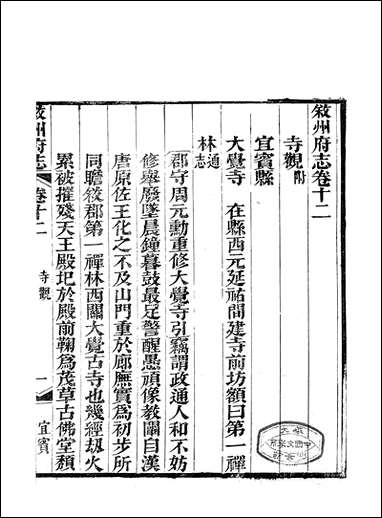 敘州府志卷十二
寺觀附
宜賓縣
大覺寺 在縣西元延祐間建寺前坊額曰第一禪
林通志
郡守周元勳重修大覺寺引竊謂政通人和不妨
修舉廢墜晨鐘暮鼓最足警醒愚頑像教闢自漢
唐原佐王化之不及山門重於廊廡實為初步所
同瞻敘郡第一禪林西關大覺古寺也幾經刼火
累被摧殘天王殿圯於殿前鞠為茂草古佛堂頹
敘州府志 卷十二 寺觀 一 宜賓